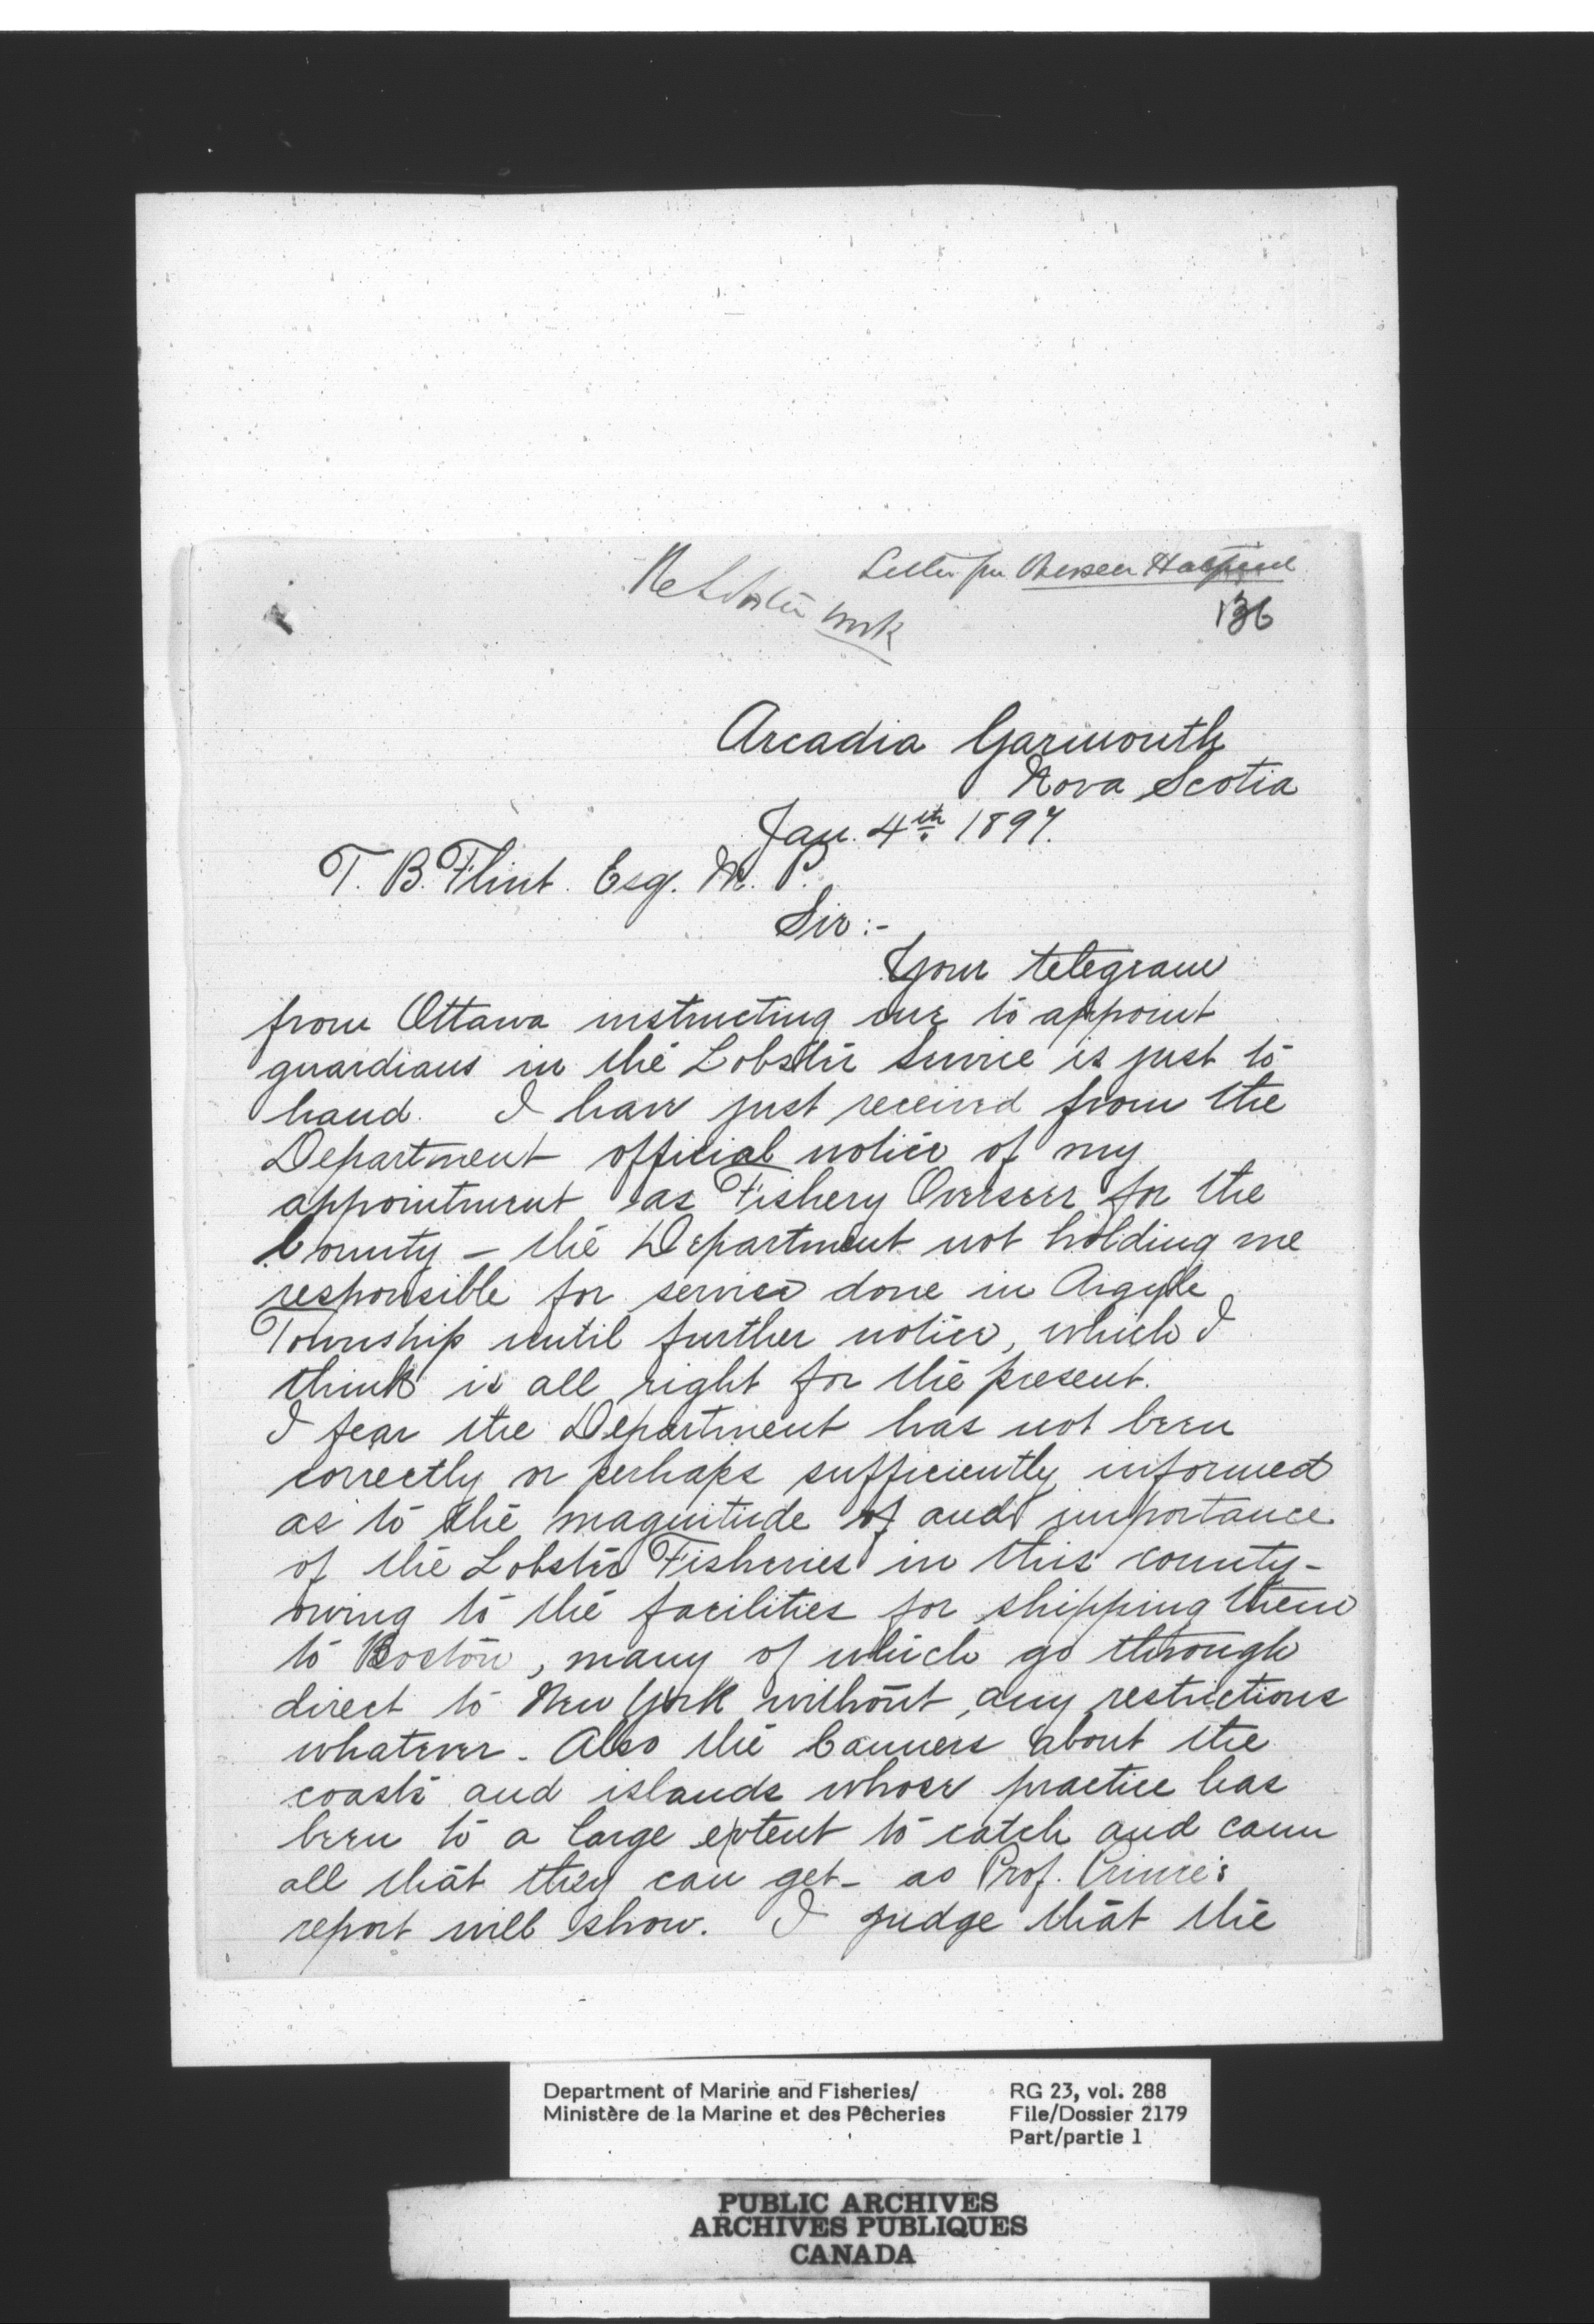 Letter fm Overseer Hatfield
Re Lobster work
136
Arcadia Yarmouth
Nova Scotia
Jan. 4th 1897.
T. B. Flint. Esq. M. P.
Sir:-
Your telegram
from Ottawa instructing me to appoint
guardians in the Lobster Service is just to
hand. I have just received from the
Department official notice of my
appointment as Fishery Overseer for the
County – the Department not holding me
responsible for service done in Argyle
Township until further notice, which I
think is all right for the present.
I fear the Department has not been
correctly or perhaps sufficiently informed
as to the magnitude of and importance
of the Lobster Fisheries in this county –
owing to the facilities for shipping them
to Boston, many of which go through
direct to New York without, any restrictions
whatever. Also the Canners about the
coasts and islands whose practice has
been to a large extent to catch and cann
all that they can get – as Prof. Prince's
report will show. I judge that the
Department of Marine and Fisheries/
Ministère de la Marine et des Pêcheries
RG 23, vol. 288
File/Dossier 2179
Part/partie 1
PUBLIC ARCHIVES
ARCHIVES PUBLIQUES
CANADA